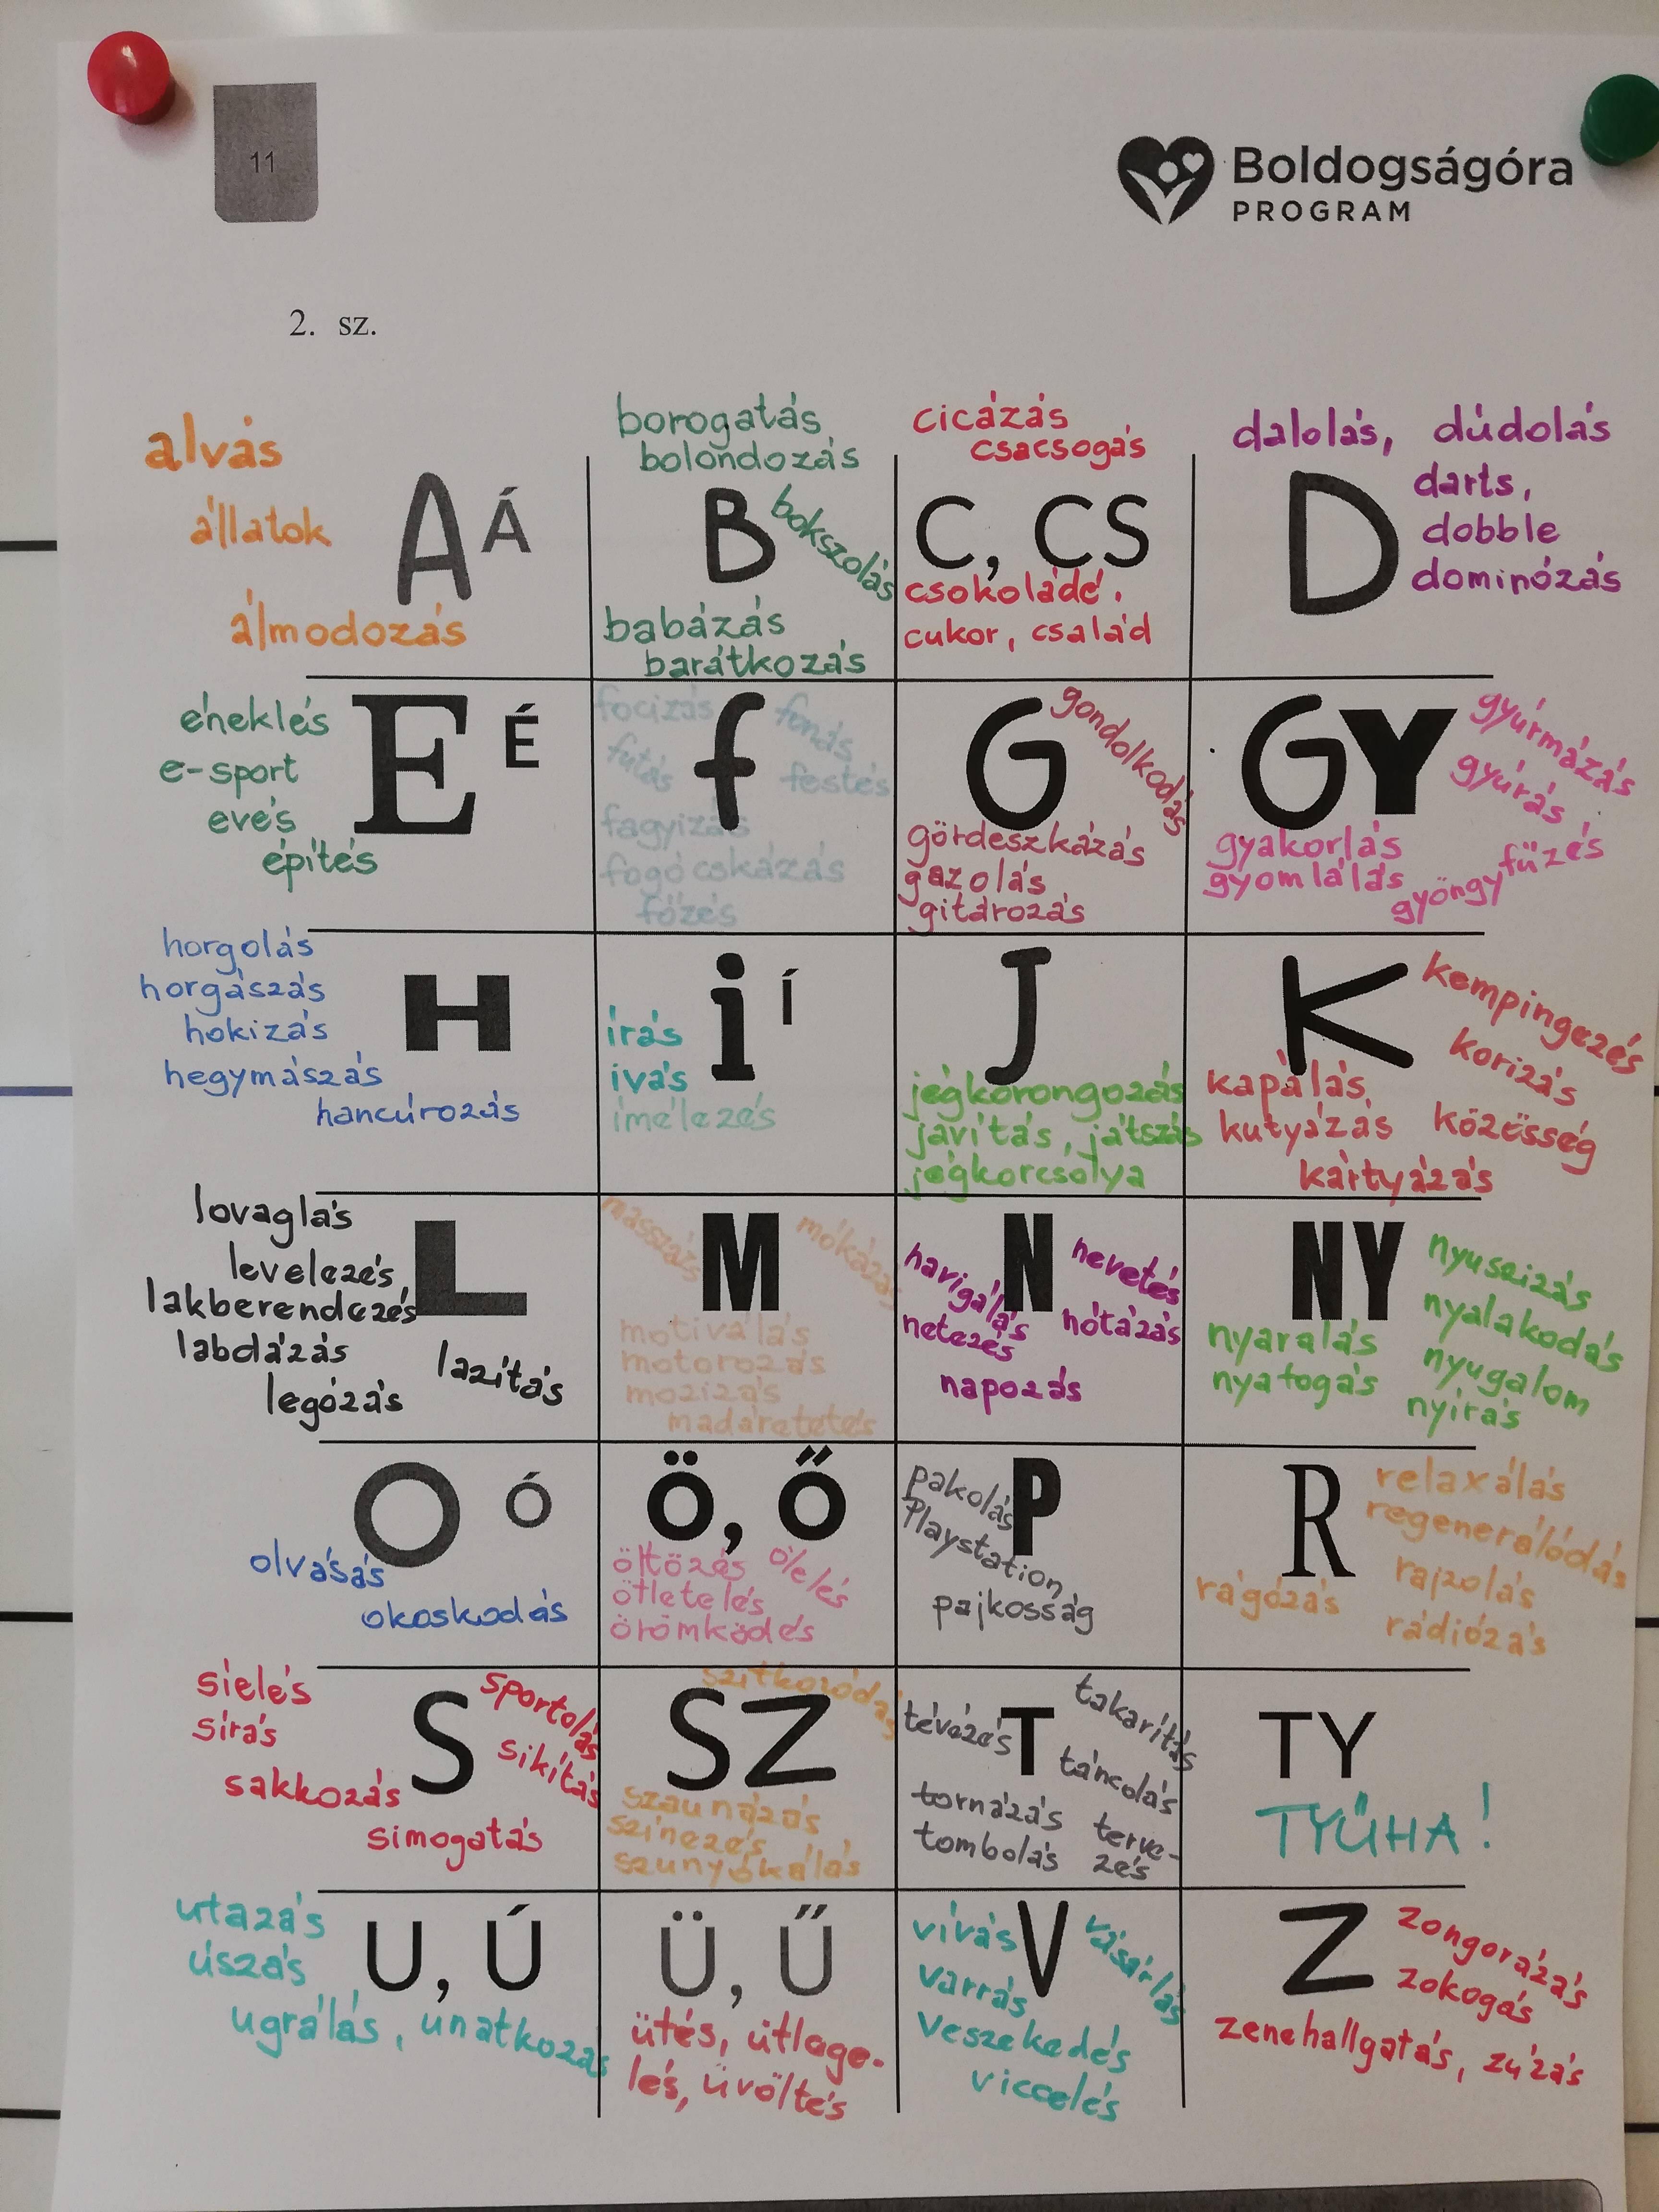 11
Boldogságóra
PROGRAM
2. sz.
alvás
állatok
A Á
álmodozás
borogatás
bolondozás
B
bokszolás
babázás
barátkozás
cicázás
csacsogás
C, CS
csokoládé,
cukor, család
dalolás, dúdolás
D
darts,
dobble
dominózás
éneklés
e-sport
evés
építés
E É
focizás
fonás
futás
f
festés
fagyizás
fogócskázás
főzés
G
gondolkodás
gördeszkázás
gazolás
gitározás
GY
gyurmázás
gyúrás
gyakorlás
gyomlálás
gyöngyfűzés
horgolás
horgászás
hokizás
hegymászás
hancúrozás
H
i í
írás
ivás
ímélezés
J
jégkorongozás
javítás, játszás
jégkorcsolya
K
kempingezés
korizás
kapálás
kutyázás
közösség
kártyázás
lovaglás
levelezés
lakberendezés
labdázás
legózás
lazítás
L
masszázs
M
mókázás
motiválás
motorozás
mozizás
madáretetés
N
navigálás
nevetés
netezés
nótázás
napozás
NY
nyuszizás
nyalakodás
nyaralás
nyugalom
nyafogás
nyírás
O Ó
olvasás
okoskodás
Ö, Ő
öltözés
ölelés
ötletelés
örömködés
pakolás
P
Playstation
pajkosság
R
relaxálás
regenerálódás
rajzolás
rágózás
rádiózás
síelés
sírás
sakkozás
S
sportolás
sikítás
simogatás
szitkozódás
SZ
szaunázás
színezés
szunyókálás
tévézés
T
takarítás
táncolás
tornázás
tombolás
terve-
zés
TY
TYŰHA!
utazás
úszás
U, Ú
ugrálás, unatkozás
Ü, Ű
ütés, ütlege-
lés, üvöltés
vívás
V
vásárlás
varrás
veszekedés
viccelés
Z
zongorázás
zokogás
zenehallgatás, zúzás